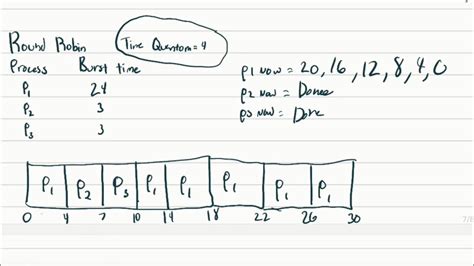 Round Robin
Time Quantom = 4
Process Burst time
P1 24
P2 3
P3 3
P1 now = 20, 16, 12, 8, 4, 0
P2 now = Donee
P3 now = Done
P1 P2 P3 P1 P1 P1 P1 P1
0 4 7 10 14 18 22 26 30